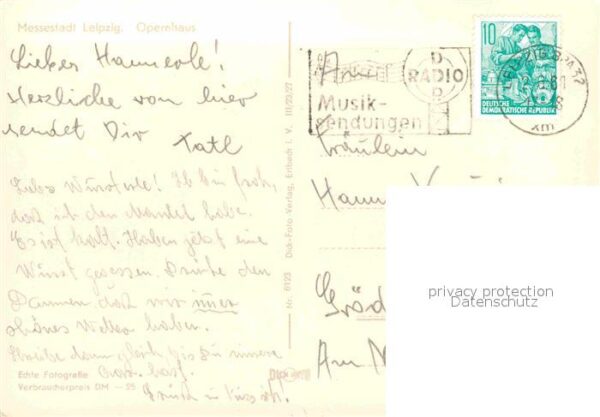 Messestadt Leipzig. Opernhaus
Lieber Hannerle!
Herzliche von hier
sendet Dir Tatl
Liebs Würsterle! Ich bin froh,
daß ich den Mantel habe.
Es ist kalt. Haben jetzt eine
Wurst gegessen. Drücke den
Daumen daß wir immer
schönes Wetter haben.
Schreibe dann gleich bis Du unsere
hast.
Gruß u. Kuss
Echte Fotografie
Verbraucherpreis DM —.25
Nr. 6123 Dick-Foto-Verlag, Erlbach i. V. III/23/27
D
RADIO
D
Musik-
sendungen
10
DEUTSCHE
DEMOKRATISCHE REPUBLIK
LEIPZIG BPA 32
xm
An
Fräulein
Hann
Am
privacy protection
Datenschutz